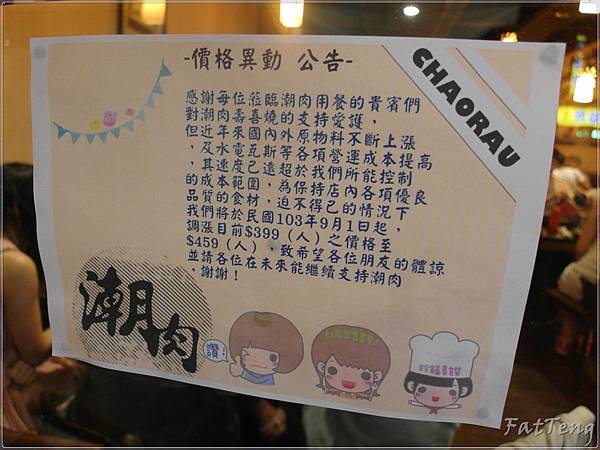 -價格異動 公告-
CHAORAU
感謝每位蒞臨潮肉用餐的貴賓們
對潮肉壽喜燒的支持愛護，
但近年來國內外原物料不斷上漲
，及水電瓦斯等各項營運成本提高
，其速度已遠超於我們所能控制
的成本範圍，為保持店內各項優良
品質的食材，迫不得已的情況下
我們將於民國103年9月1日起，
調漲目前$399（人）之價格至
$459（人），致希望各位朋友的體諒
並請各位在未來能繼續支持潮肉
，謝謝！
潮肉
讚!
FatTeng